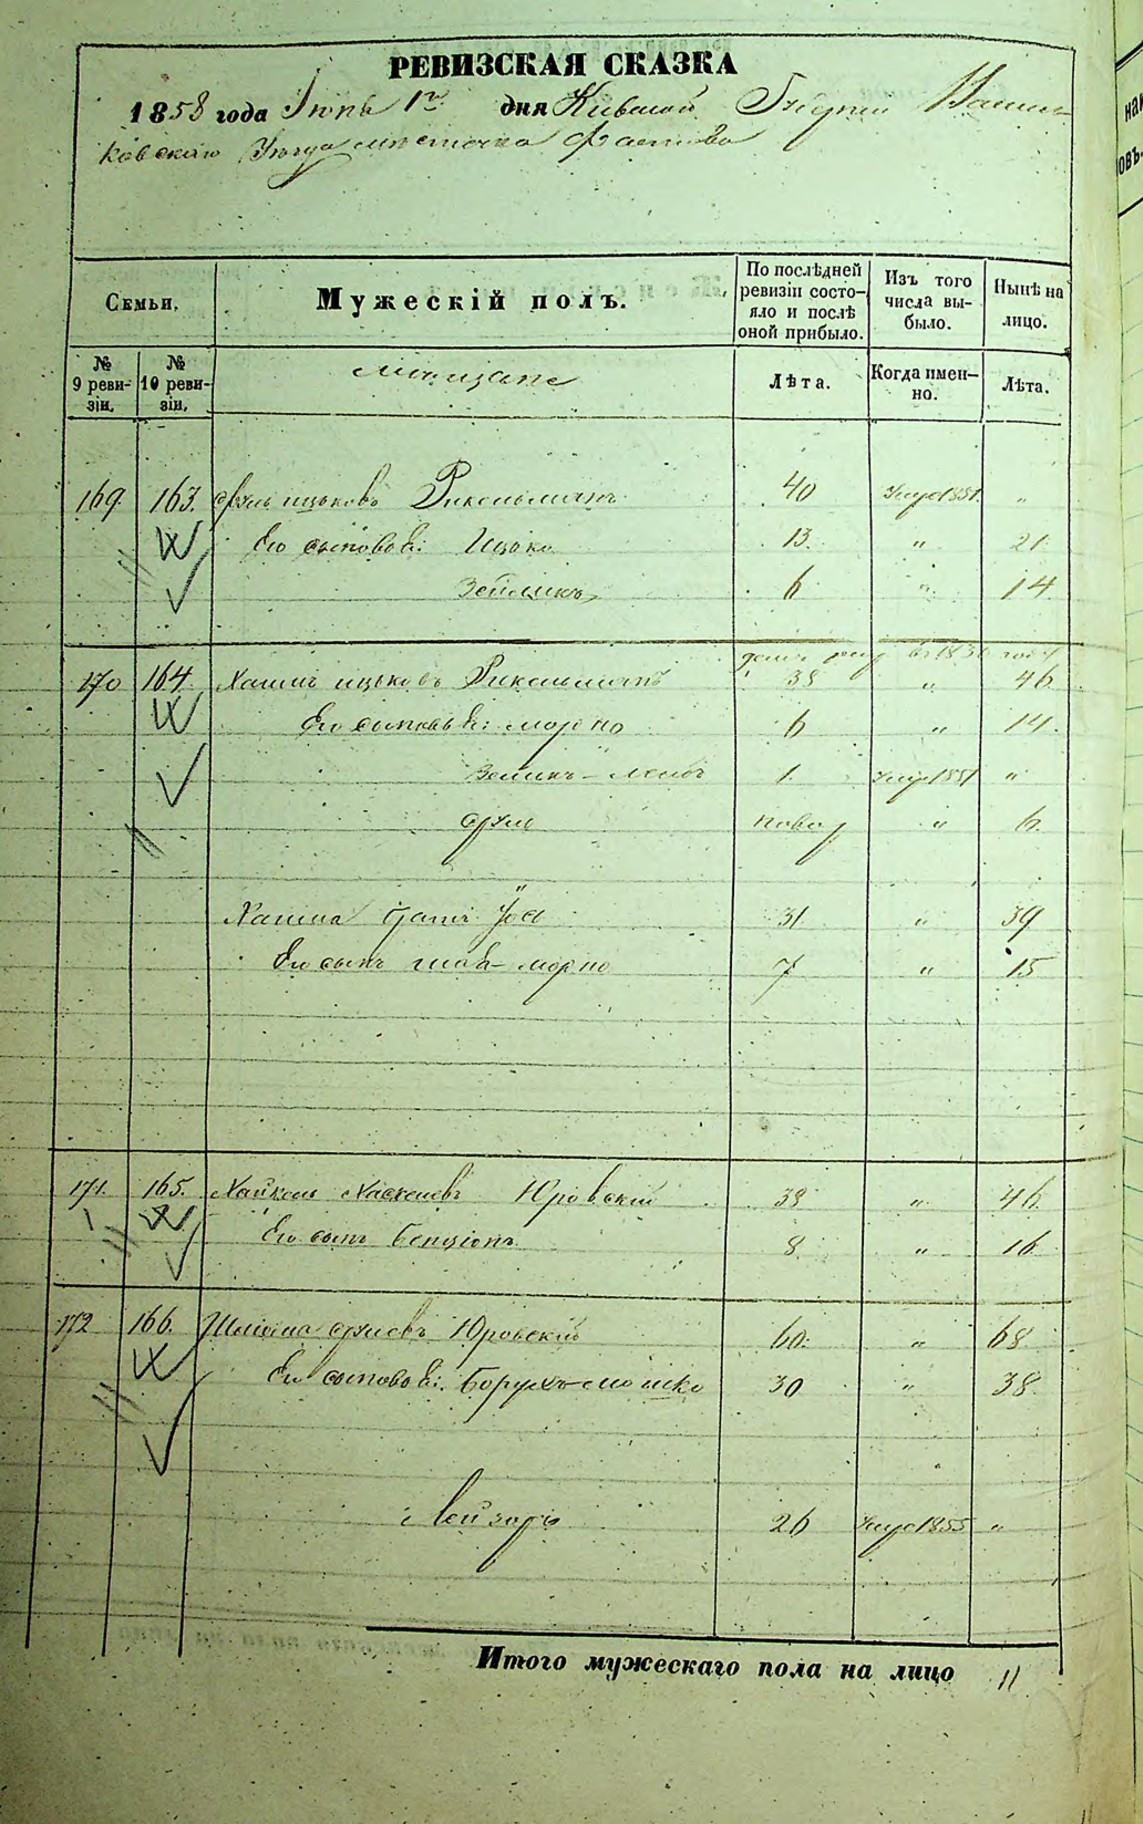 РЕВИЗСКАЯ СКАЗКА
1858 года Іюня 1го дня Кіевской Губерніи Василь-
ковскаго Уѣзда мѣстечка Фастова
Семьи. Мужескій полъ. По послѣдней ревизіи состо-яло и послѣ оной прибыло. Изъ того числа вы-было. Нынѣ на лицо.
№ 9 реви-зіи. № 10 реви-зіи. Мещане Лѣта. Когда имен-но. Лѣта.
169. 163. Сруль ицьковъ Рикельманъ 40 Умре 1851. "
Его сыновья: Ицько 13. " 21
Зейликъ 6 " 14
въ 1850 году
170 164. Хаимъ ицьковъ Рикельманъ 38 " 46
Его сыновья: мордко 6 " 14.
Зейликъ-лейбъ 1. Умре 1851 "
Сруль новор " 6.
Хаима братъ Іось 31 " 39
Его сынъ мордко 7 " 15
171. 165. Хайкель Хаскелевъ Юровскій 38 " 46.
Его сынъ Бенціонъ 8. " 16
172 166. Шлиома срулевъ Юровскій 60. " 68
Его сыновья: Борухъ-мошко 30 " 38.
Лейзоръ 26 Умре 1855 "
Итого мужескаго пола на лицо 11